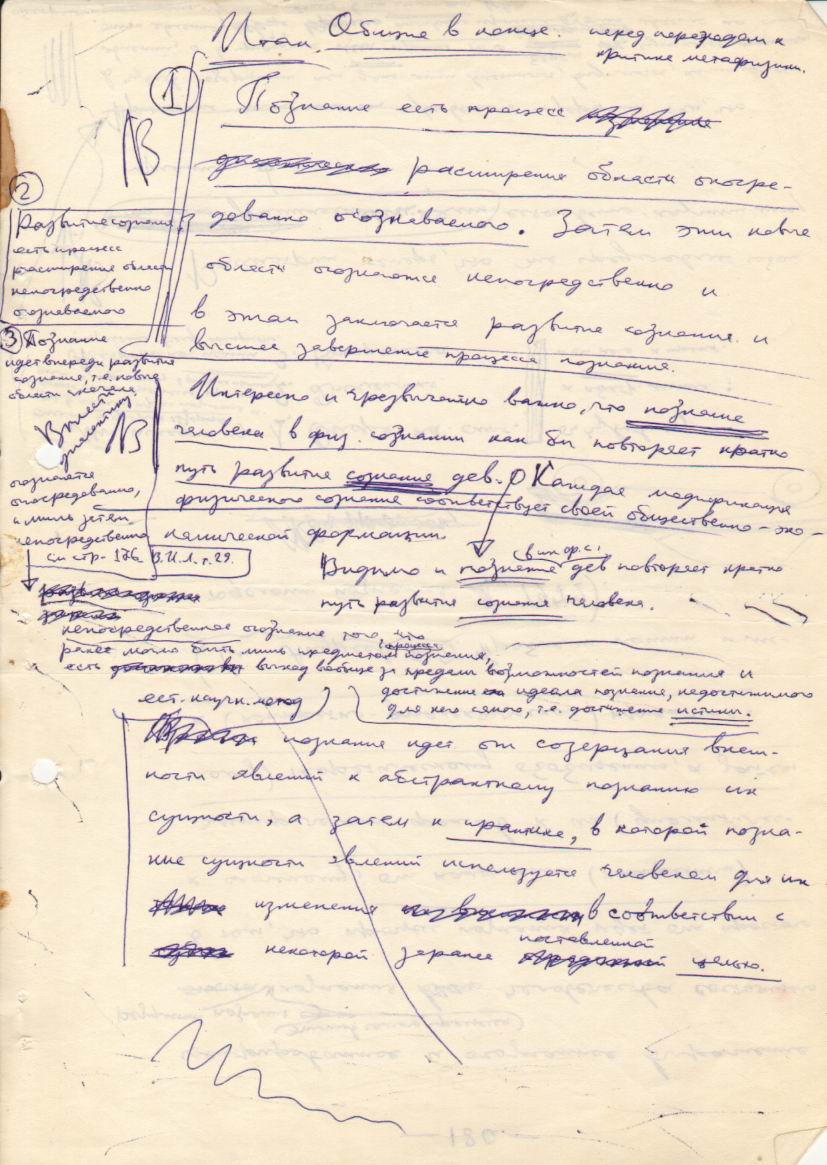 Итак. Общие в конце. перед переходом к
критике метафизики.
1 Познание есть процесс
NB
расширения области опосре-
дованно осознаваемого. Затем эти новые
области осознаются непосредственно и
в этом заключается развитие сознания и
высшее завершение процесса познания.
2
Развитие сознания
есть процесс
расширения области
непосредственно
осознаваемого
3 Познание
идет впереди развития
сознания, т.е. новые
области сначала
осознаются
опосредованно,
и лишь затем
непосредственно
Внести
диалектику.
NB
см стр. 176 В.И.Л. т.29.
Интересно и чрезвычайно важно, что познание
человека в физ. сознании как бы повторяет кратко
путь развития сознания дев. Каждая модификация
физического сознания соответствует своей общественно-эко-
номической формации.
Видимо и познание дев повторяет кратко
путь развития сознания человека.
непосредственное осознание того, что
ранее могло быть лишь предметом процесса познания,
есть выход вообще за пределы возможностей познания и
достижение идеала познания, недостижимого
для него самого, т.е. достижение истины.
ест. научн. метод
познание идет от созерцания внеш-
ности явлений к абстрактному познанию их
сущности, а затем к практике, в которой позна-
ние сущности явлений используется человеком для их
изменения в соответствии с
некоторой заранее поставленной целью.